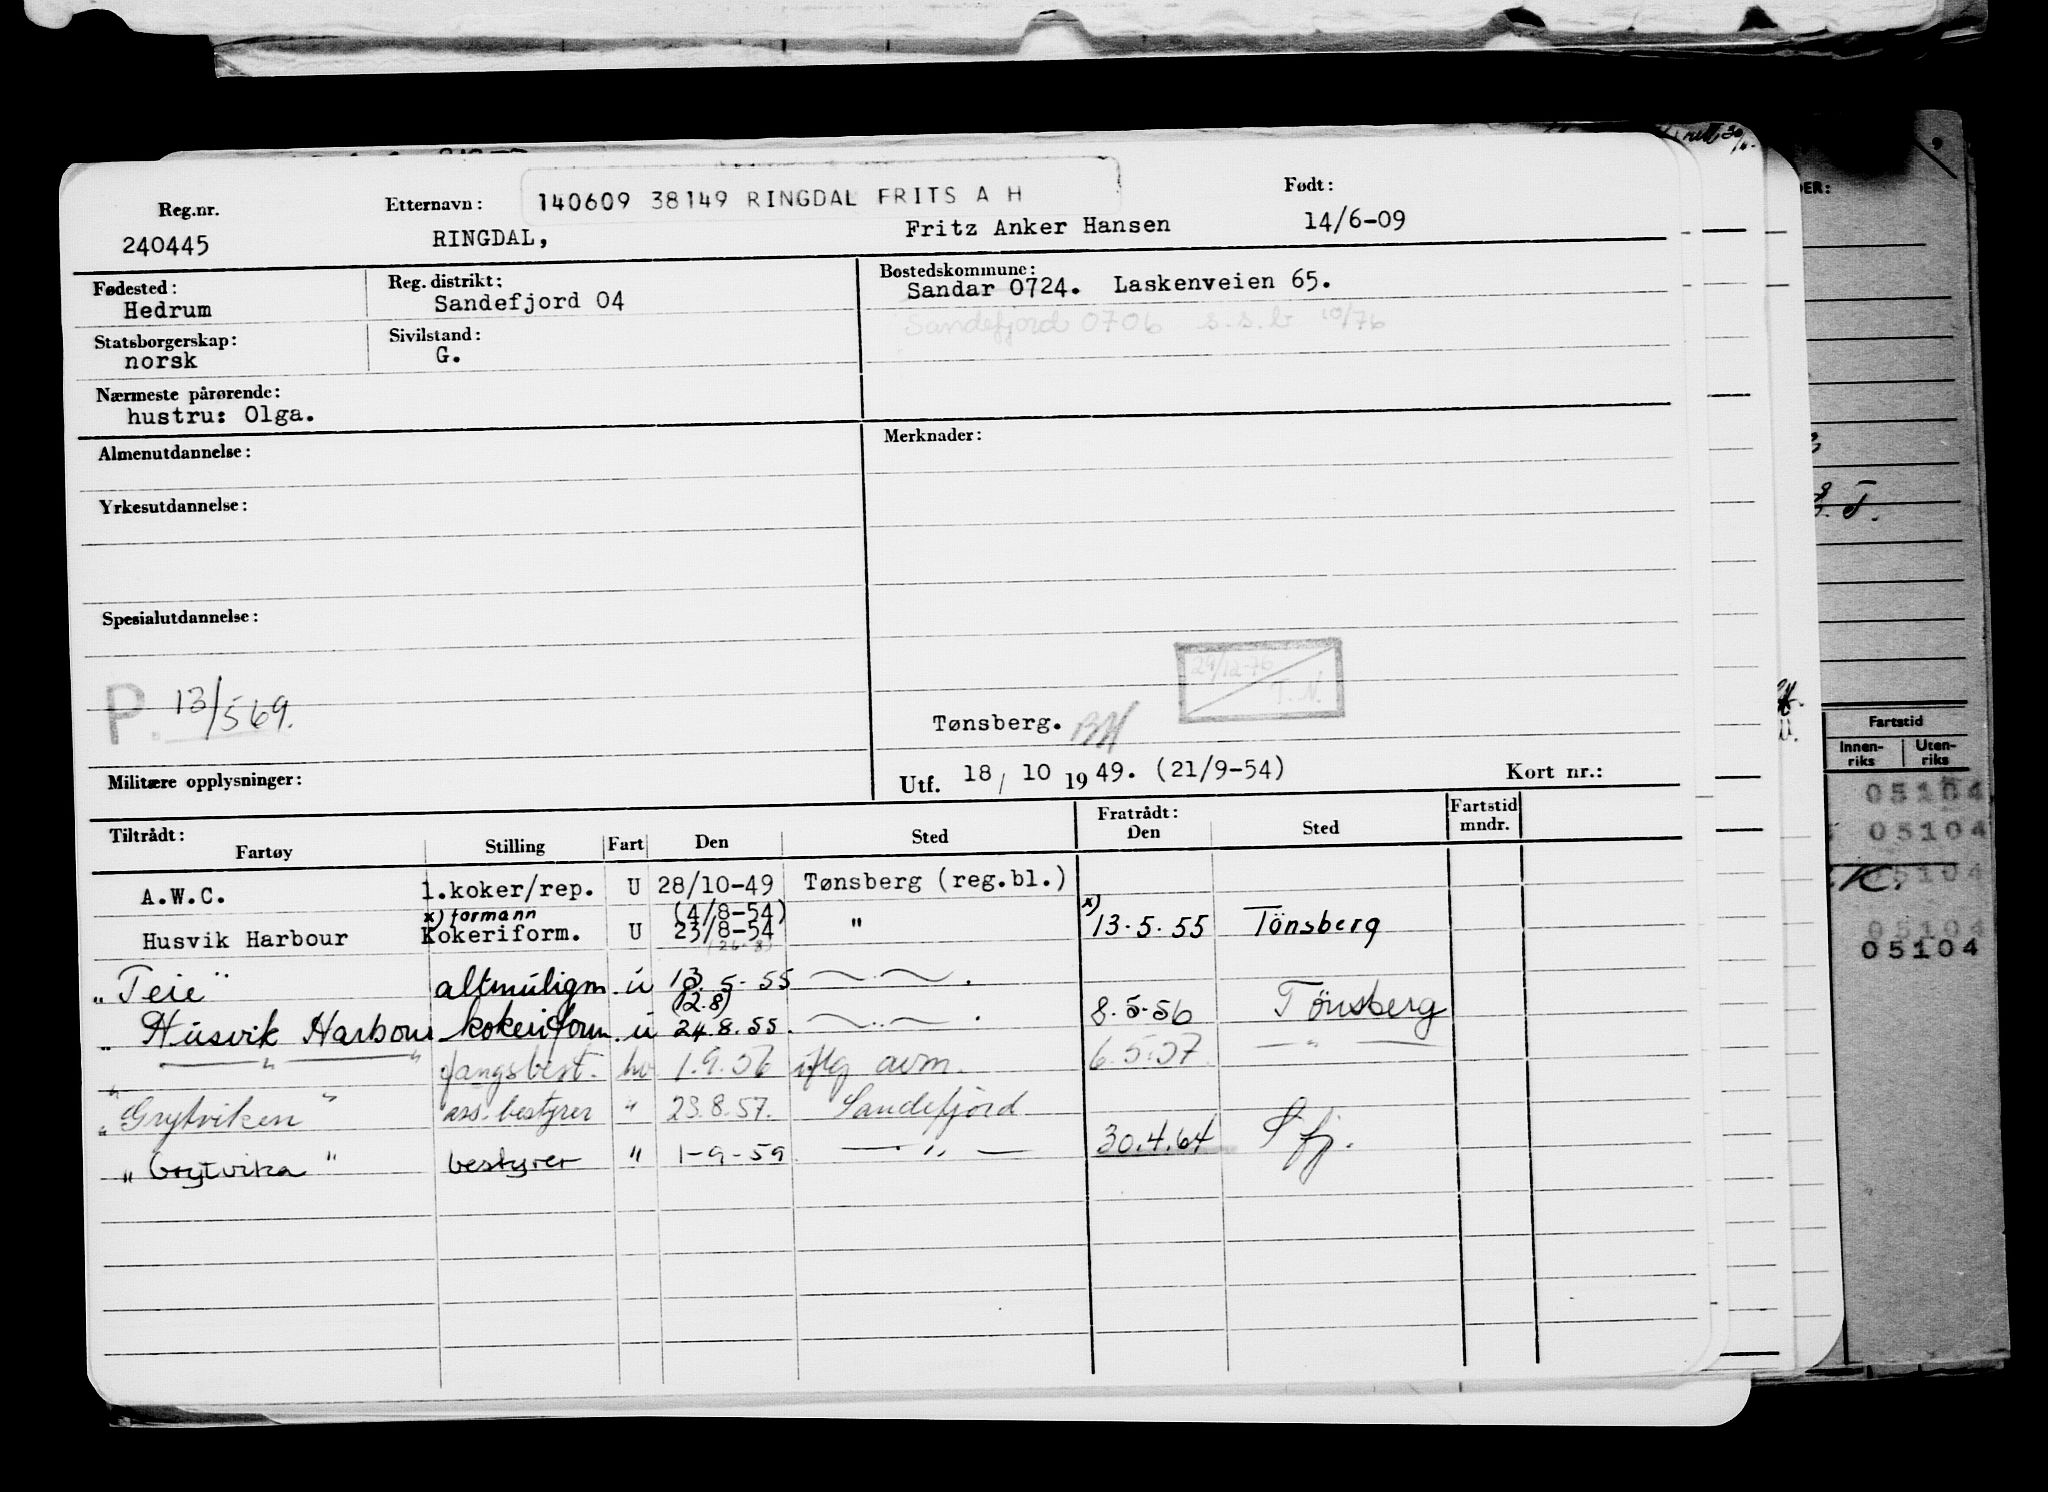 140609 38149 RINGDAL FRITS A H
Reg.nr. Etternavn: Født:
240445 RINGDAL, Fritz Anker Hansen 14/6-09
Fødested: Reg. distrikt: Bostedskommune:
Hedrum Sandefjord 04 Sandar 0724. Laskenveien 65.
Sandefjord 0706 s.s.b 10/76
Statsborgerskap: Sivilstand:
norsk G.
Nærmeste pårørende:
hustru: Olga.
Almenutdannelse: Merknader:
Yrkesutdannelse:
Spesialutdannelse:
P. 13/569.
29/12-76 T.N.
Tønsberg. BH
Militære opplysninger: Utf. 18/10 1949. (21/9-54) Kort nr.:
Tiltrådt: Fratrådt: Fartstid
Fartøy Stilling Fart Den Sted Den Sted mndr.
A.W.C. 1.koker/rep. U 28/10-49 Tønsberg (reg.bl.)
x) formann (4/8-54) x)
Husvik Harbour Kokeriform. U 23/8-54 " 13.5.55 Tönsberg
(26.8)
"Teie" altmuligm. u 13.5-55 —..—.
(2.8)
" Husvik Harbour kokeriform. u 24.8.55. —..—. 8.5.56 Tönsberg
" — " — " fangsbest. hv 1.9.56 iflg avm. 6.5.57. — " —
"Grytviken" ass. bestyrer " 23.8.57. Sandefjord
"Grytvika" bestyrer " 1-9-59 — " — 30.4.64 Sfj.
DER:
Fartstid
Innen-riks Uten-riks
05104
05104
05104
K.
05104
05104